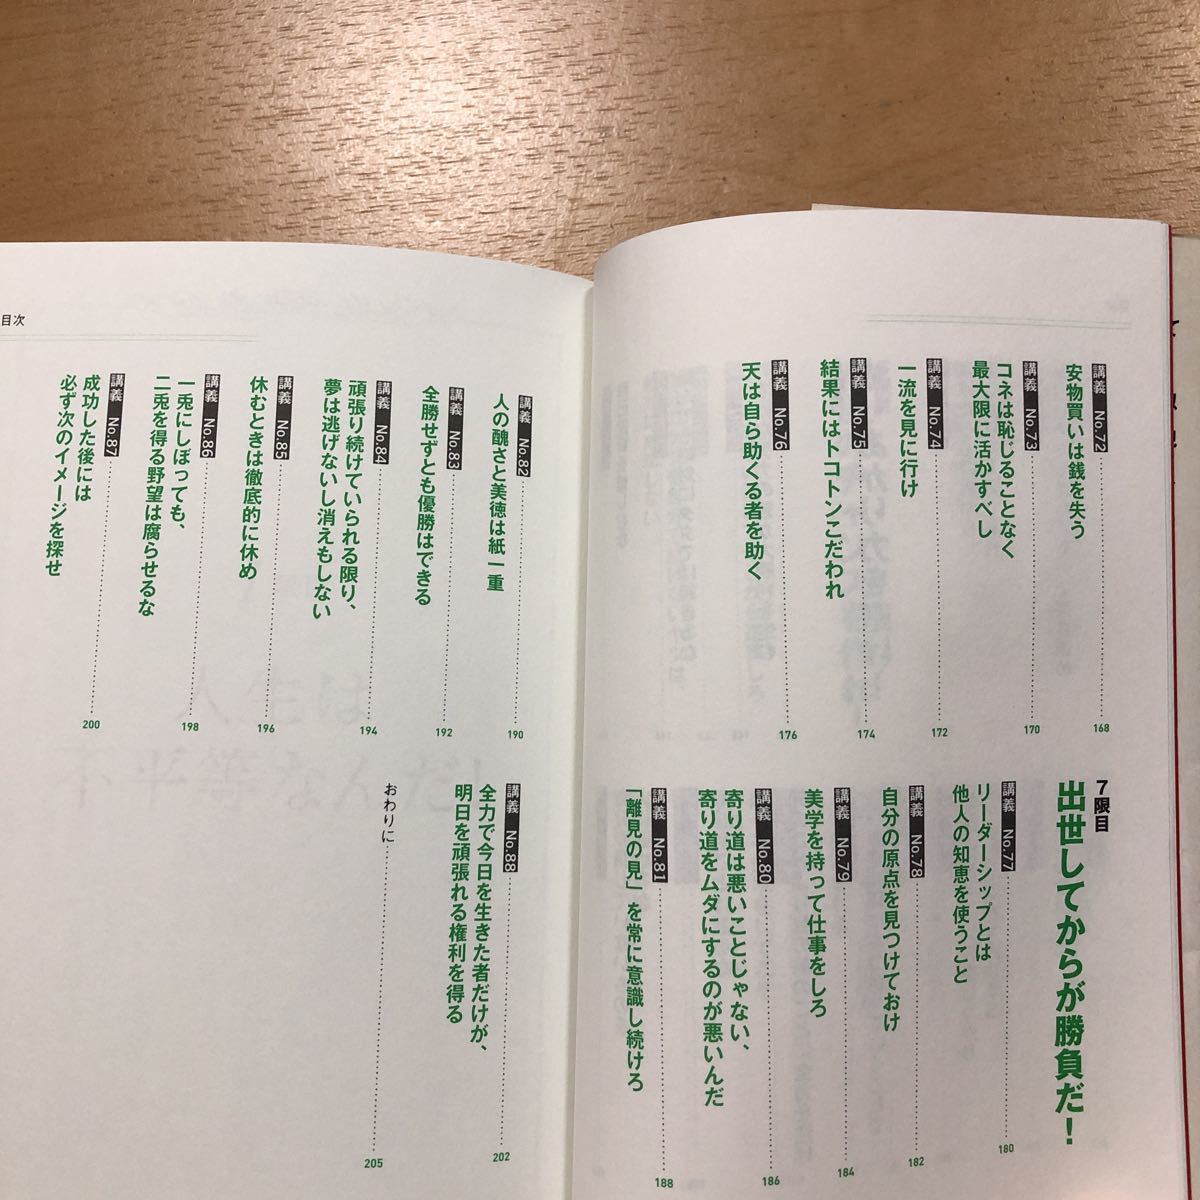 講義 No.72
安物買いは銭を失う
168
講義 No.73
コネは恥じることなく
最大限に活かすべし
170
講義 No.74
一流を見に行け
172
講義 No.75
結果にはトコトンこだわれ
174
講義 No.76
天は自ら助くる者を助く
176
7限目
出世してからが勝負だ！
講義 No.77
リーダーシップとは
他人の知恵を使うこと
180
講義 No.78
自分の原点を見つけておけ
182
講義 No.79
美学を持って仕事をしろ
184
講義 No.80
寄り道は悪いことじゃない、
寄り道をムダにするのが悪いんだ
186
講義 No.81
「離見の見」を常に意識し続けろ
188
目次
講義 No.82
人の醜さと美徳は紙一重
190
講義 No.83
全勝せずとも優勝はできる
192
講義 No.84
頑張り続けていられる限り、
夢は逃げないし消えもしない
194
講義 No.85
休むときは徹底的に休め
196
講義 No.86
一兎にしぼっても、
二兎を得る野望は腐らせるな
198
講義 No.87
成功した後には
必ず次のイメージを探せ
200
講義 No.88
全力で今日を生きた者だけが、
明日を頑張れる権利を得る
202
おわりに
205
人生は
不平等なんだ！